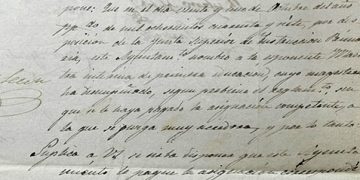 pone: Que en el día veinte y uno de Octubre del año
pp.do de mil ochocientos cuarenta y siete, por dis
posicion de la Junta Superior de Instruccion Prima
ria, este Ayuntam.to nombró a la esponente Maes
tra interina de primera educacion, cuyo magisterio
ha desempeñado, segun previene el reglam.to sin
que se le haya pagado la asignacion competente, a
la que se juzga muy acredora, y por lo tanto
Suplica a VS se sirva disponer que este Ayunta
miento le pague la asignacion